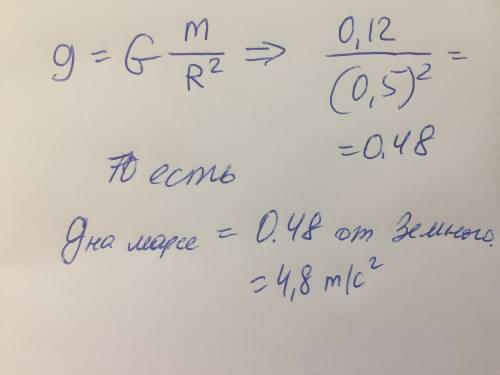 g = G m/R² ⇒ 0,12/(0,5)² =
= 0.48
То есть
g на марсе = 0.48 от Земного.
= 4,8 m/c²